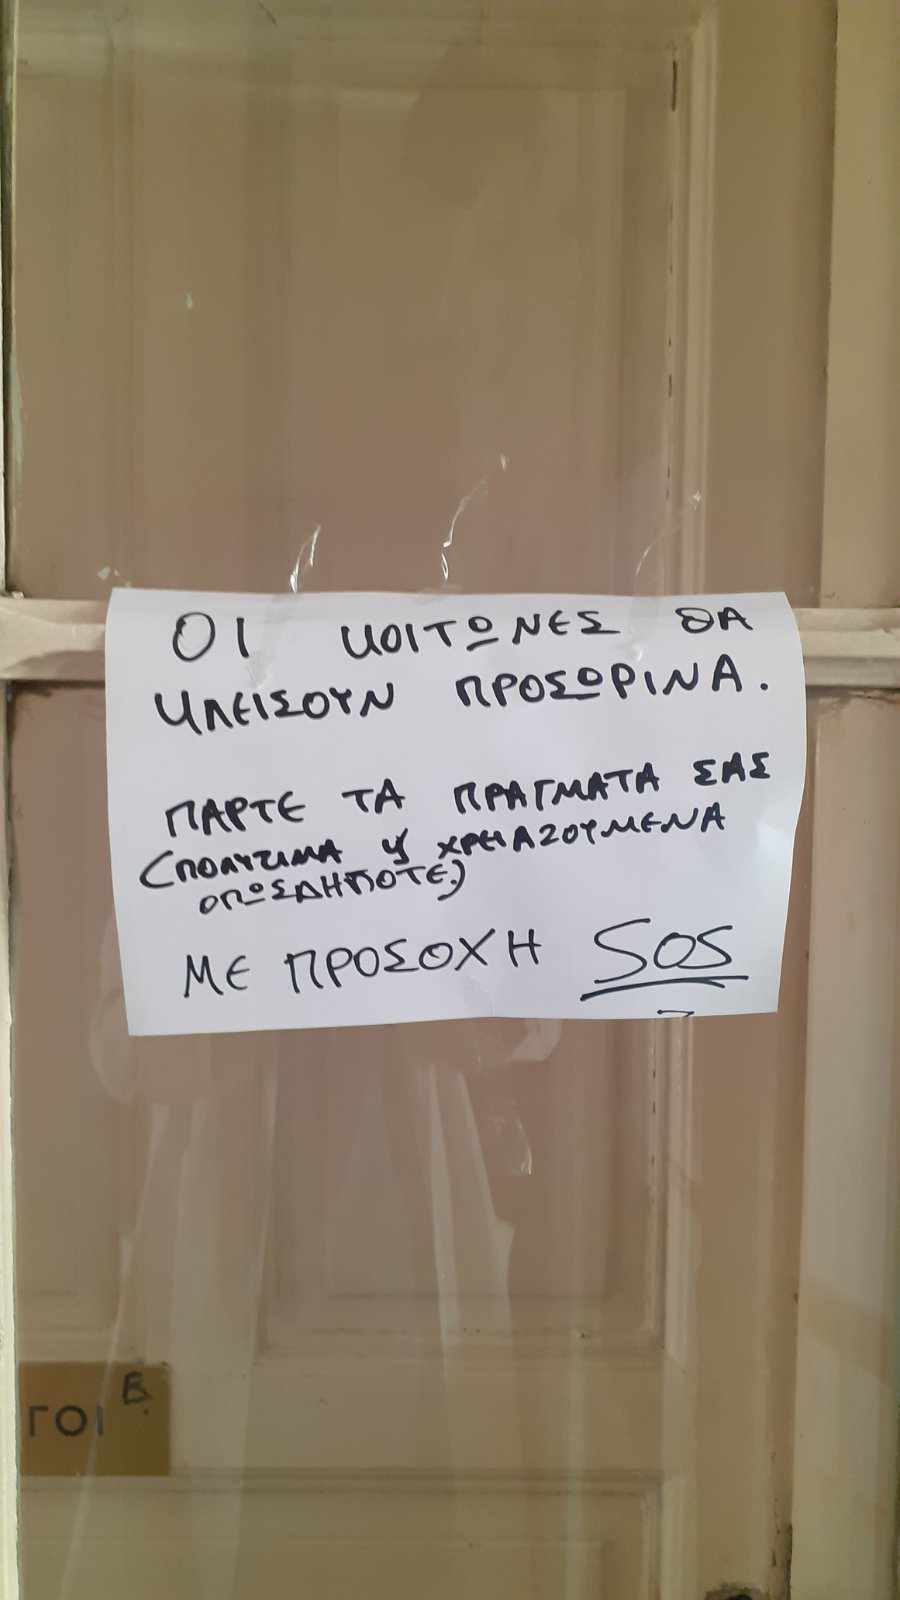 ΟΙ ΚΟΙΤΩΝΕΣ ΘΑ
ΚΛΕΙΣΟΥΝ ΠΡΟΣΩΡΙΝΑ.
ΠΑΡΤΕ ΤΑ ΠΡΑΓΜΑΤΑ ΣΑΣ
(ΠΟΛΥΤΙΜΑ ή ΧΡΕΙΑΖΟΥΜΕΝΑ
ΟΠΩΣΔΗΠΟΤΕ.)
ΜΕ ΠΡΟΣΟΧΗ SOS
ΓΟΙ Β.